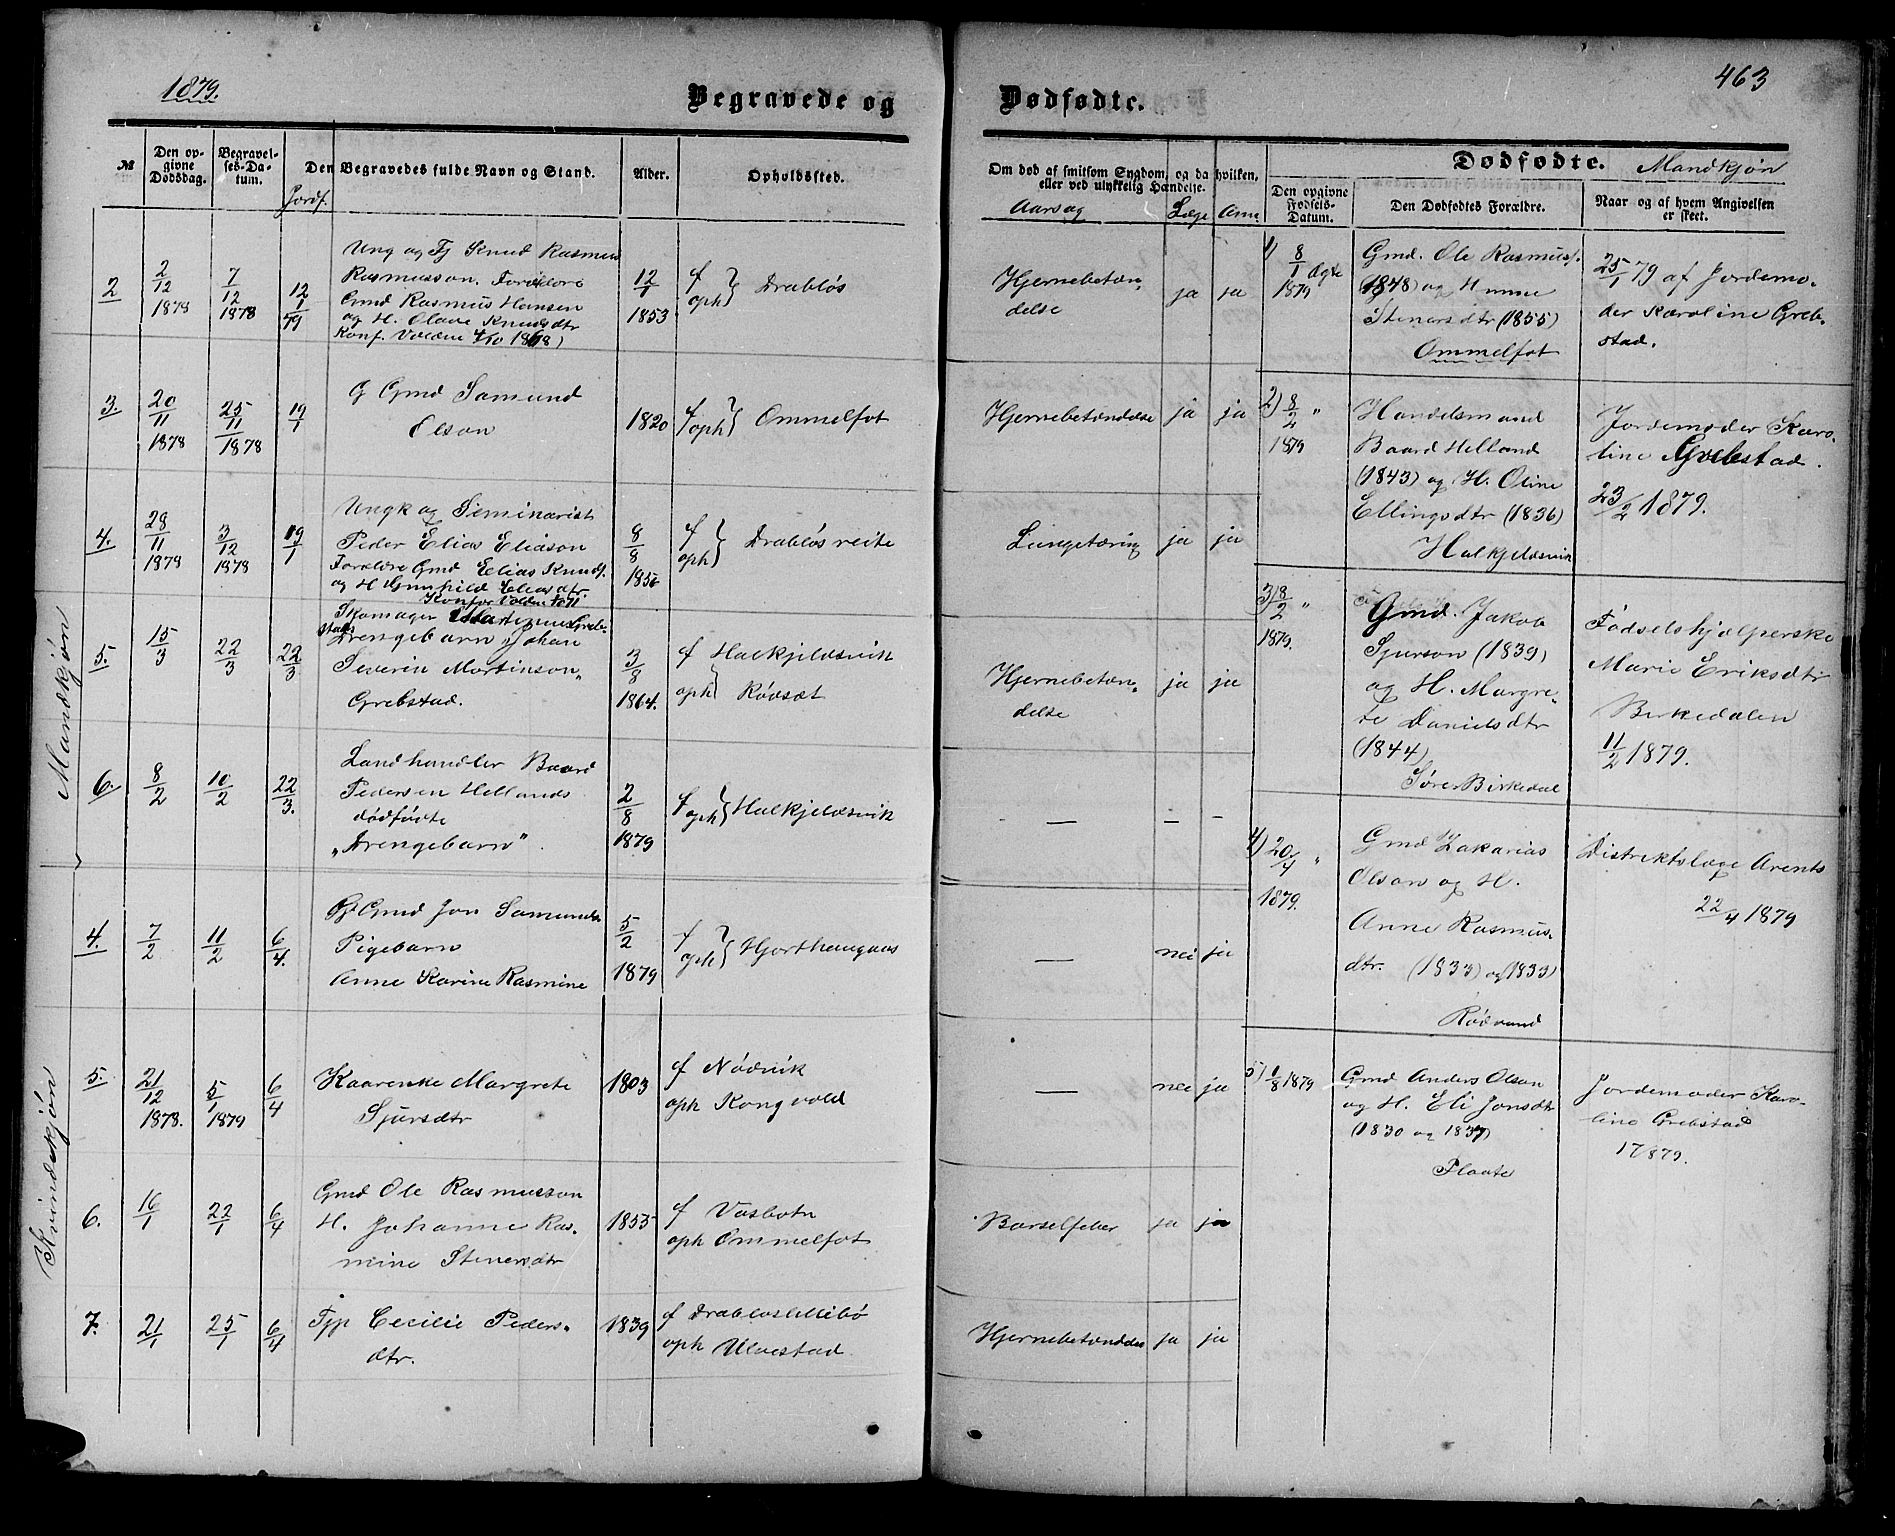 1879.
Begravede og
№
Den opgivne Dødsdag.
Begravelses-Datum.
Jordf.
Den Begravedes fulde Navn og Stand.
Alder.
Opholdssted.
Mandkjøn
2
2/12 1878
7/12 1878
12/1 79
Ung og Tj Knud Rasmus
Rasmusson. Forældre
Gmd Rasmus Hansen
og H. Olave Knudsdtr
Konf. Volden 4/10 1868)
12/1 1853
f
oph } Drabløs
3.
20/11 1878
25/11 1878
19/1
G Gmd Samund
Olson
1820
f
oph } Ommelfot
4.
28/11 1878
3/12 1878
19/1
Ungk og Seminarist
Peder Elias Eliason
Forældre Gmd Elias Knuds.
og H Gunhild Eliasdtr.
8/8
f
oph } Drabløsreite
5.
15/3
22/3
22/3
Skomager Martinus Greb-
stads
Drengebarn Johan
Severin Martinson
Grebstad.
3/8 1864.
f Halkjeldsvik
oph Rødsæt
6.
8/2
10/2
22/3.
Landhandler Baard
Pedersen Hellands
dødfødte
„Drengebarn“
2/8 1879
f
oph } Halkjeldsvik
Kvindekjøn
4.
7/2
11/2
6/4.
Gmd Jon Samunds
Pigebarn
Anne Karine Rasmine
5/2 1879
f
oph } Hjorthaugaas
5.
21/12 1878.
5/1 1879
6/4
Kaarenke Margrete
Sjursdtr
1803
f Nødvik
oph Kongsvold
6.
16/1
22/1
6/4
Gmd Ole Rasmusson
H. Johanne Ras-
mine Stenersdtr
1855
f Vasbotn
oph Ommelfot
7.
21/1
25/1
6/4
Tjp Cecilie Peders-
dtr.
1839
f Drabløslillibø
oph Ulvestad
463
Dødfødte.
Om død af smitsom Sygdom, og da hvilken,
eller ved ulykkelig Hændelse.
Aarsag
Læge
Anm
Hjernebetæn-
delse
ja
ja
Hjernebetændelse
ja
ja
Lungetæring
ja
ja
Hjernebetæn-
delse
ja
ja
—
—
—
—
nei
ja
—
nei
ja
Barselfeber
ja
ja
Hjernebetændelse
ja
ja
Dødfødte. Mandkjøn
Den opgivne Fødsels-Datum.
Den Dødfødtes Forældre.
Naar og af hvem Angivelsen
er skeet.
1) 8/1 ægte
1879
Gmd. Ole Rasmuss.
(1848) og H
Stenersdtr (1855)
Ommelfot
25/1 79 af Jordemo-
der Karoline Greb-
stad.
2) 8/2 „
1879
Handelsmand
Baard Helland
(1843) og H. Oline
Ellingsdtr (1836)
Halkjeldsvik
Jordemoder Karo-
line Grebstad.
23/2 1879.
3) 8/2 „
1879.
Gmd. Jakob
Sjurson (1839)
og H. Margre-
te Danielsdtr
(1844)
Søre Birkedal
Fødselshjælperske
Marie Eriksdtr
Birkedalen
11/2 1879.
4) 20/4 „
1879.
Gmd Zakarias
Olson og H.
Anne Rasmus-
dtr. (1833) og (1833)
Rødvand
Distriktslæge Arents
22/4 1879
5) 1/8 1879
Gmd Anders Olson
og H. Eli Jonsdtr
(1830 og 1837)
Flaate
Jordemoder Karo-
line Grebstad